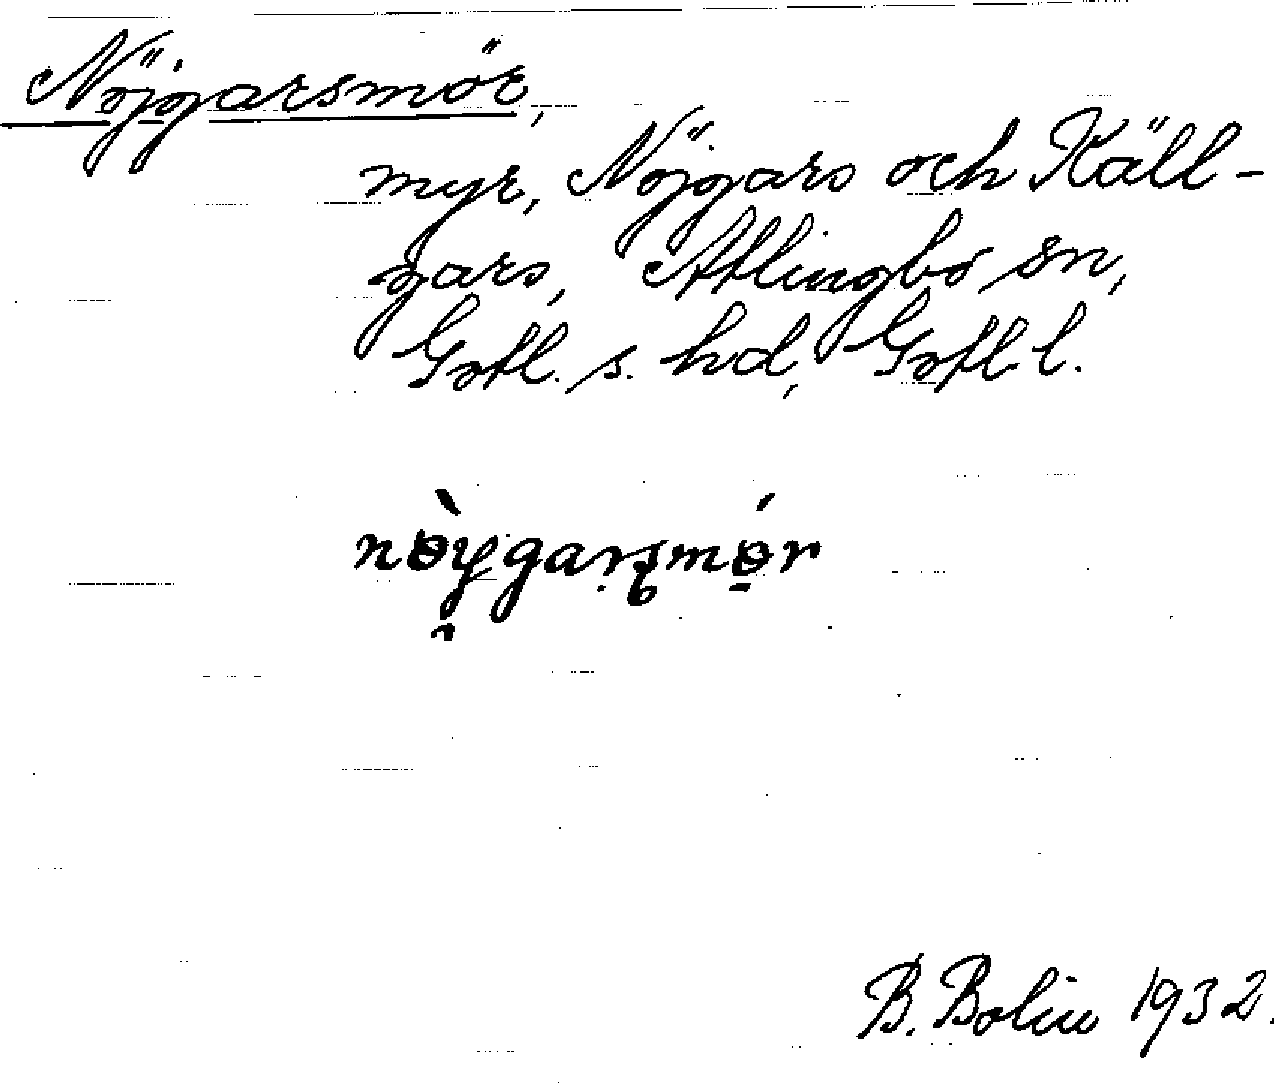 Nöjgarsmör,
myr, Nöjgars och Käll-
gars, Atlingbo sn,
Gotl. s. hd, Gotl. l.
B. Bolin 1932.